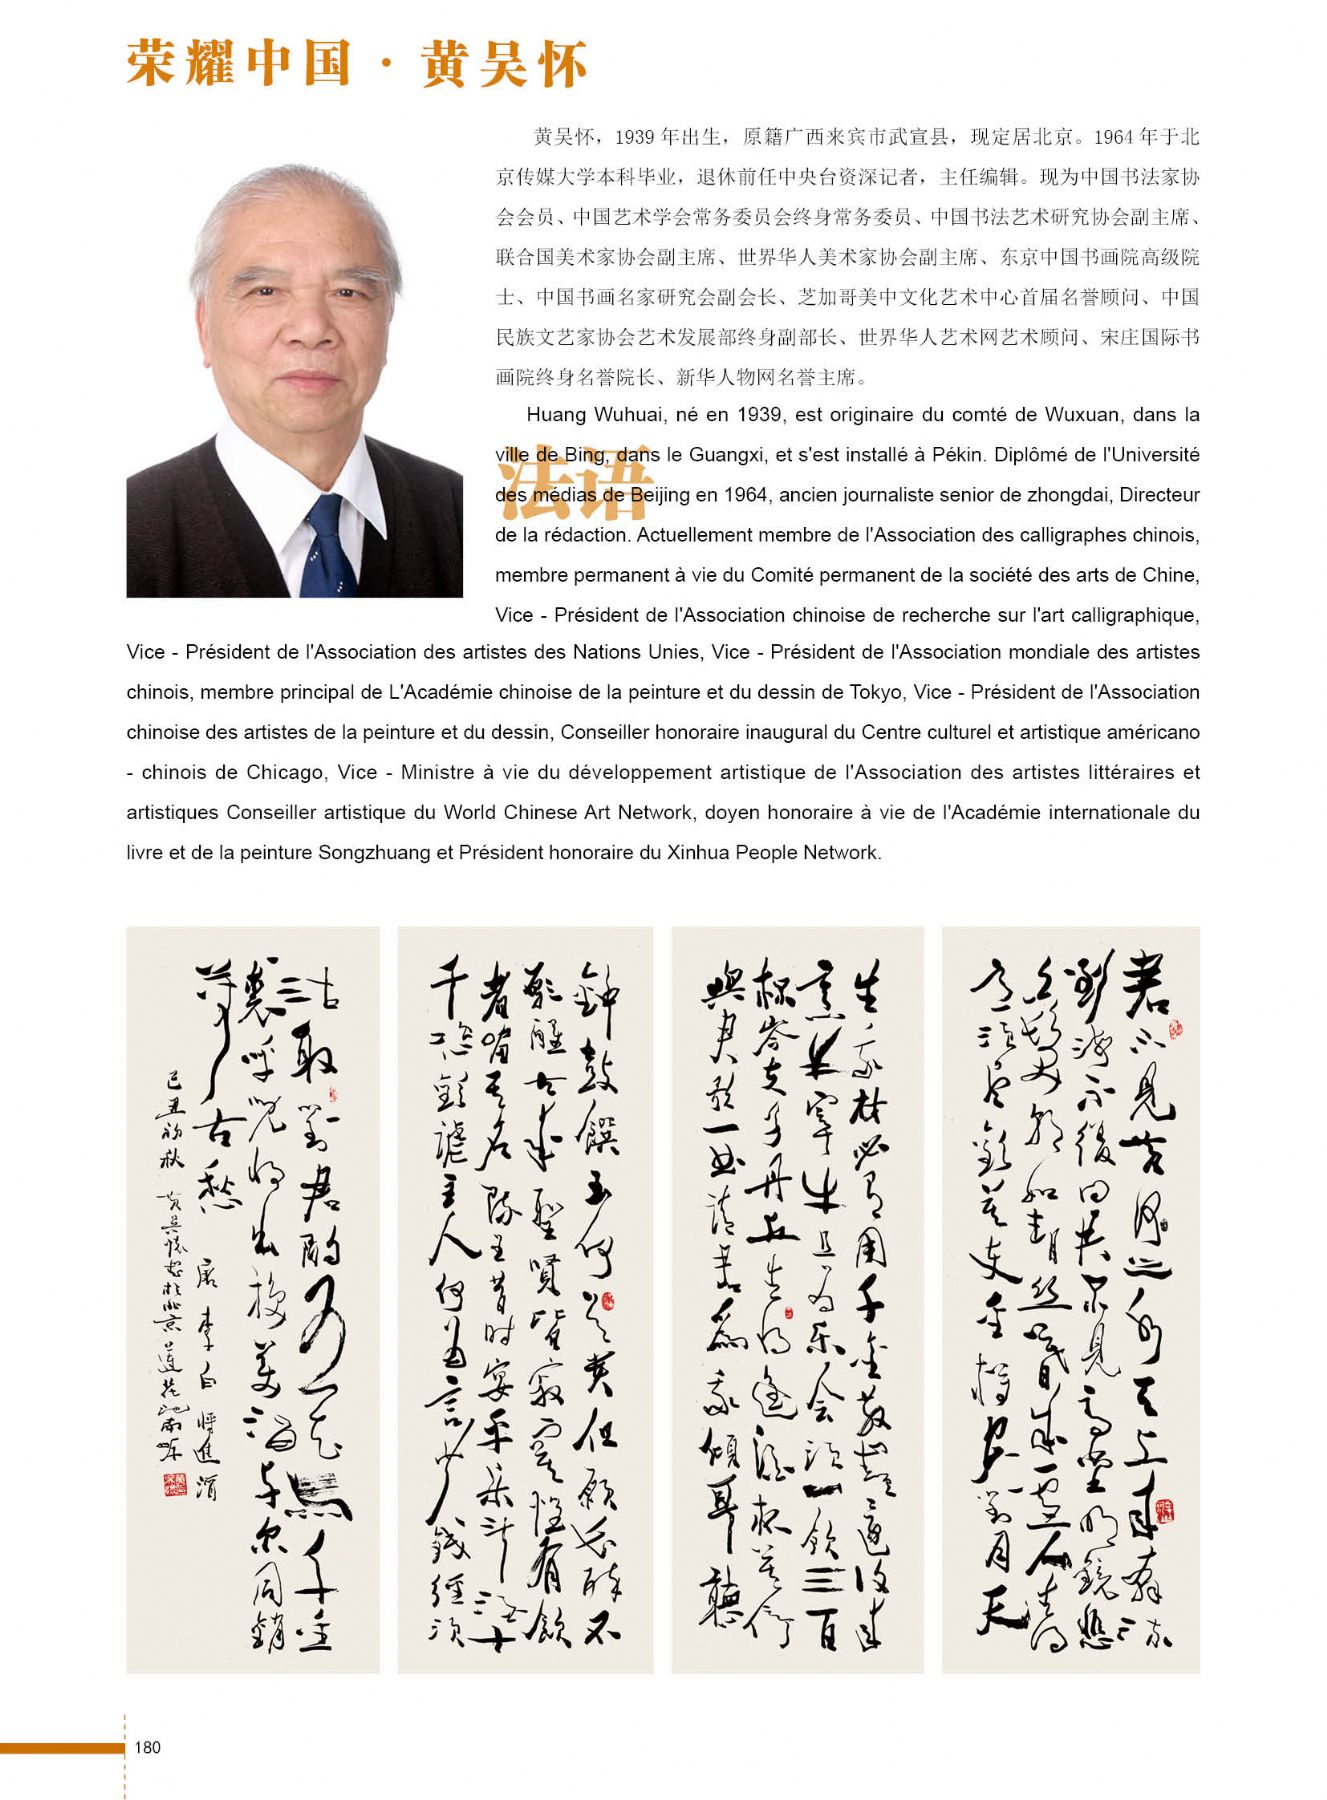 荣耀中国·黄吴怀
黄吴怀，1939年出生，原籍广西来宾市武宣县，现定居北京。1964年于北
京传媒大学本科毕业，退休前任中央台资深记者，主任编辑。现为中国书法家协
会会员、中国艺术学会常务委员会终身常务委员、中国书法艺术研究协会副主席、
联合国美术家协会副主席、世界华人美术家协会副主席、东京中国书画院高级院
士、中国书画名家研究会副会长、芝加哥美中文化艺术中心首届名誉顾问、中国
民族文艺家协会艺术发展部终身副部长、世界华人艺术网艺术顾问、宋庄国际书
画院终身名誉院长、新华人物网名誉主席。
法语
Huang Wuhuai, né en 1939, est originaire du comté de Wuxuan, dans la
ville de Bing, dans le Guangxi, et s'est installé à Pékin. Diplômé de l'Université
des médias de Beijing en 1964, ancien journaliste senior de zhongdai, Directeur
de la rédaction. Actuellement membre de l'Association des calligraphes chinois,
membre permanent à vie du Comité permanent de la société des arts de Chine,
Vice - Président de l'Association chinoise de recherche sur l'art calligraphique,
Vice - Président de l'Association des artistes des Nations Unies, Vice - Président de l'Association mondiale des artistes
chinois, membre principal de L'Académie chinoise de la peinture et du dessin de Tokyo, Vice - Président de l'Association
chinoise des artistes de la peinture et du dessin, Conseiller honoraire inaugural du Centre culturel et artistique américano
- chinois de Chicago, Vice - Ministre à vie du développement artistique de l'Association des artistes littéraires et
artistiques Conseiller artistique du World Chinese Art Network, doyen honoraire à vie de l'Académie internationale du
livre et de la peinture Songzhuang et Président honoraire du Xinhua People Network.
君不見黃河之水天上來奔流
到海不復回君不見高堂明鏡悲
白髮朝如青絲暮成雪人生得
意須盡歡莫使金樽空對月天
生我材必有用千金散盡還復來
烹羊宰牛且為樂會須一飲三百
杯岑夫子丹丘生將進酒杯莫停
與君歌一曲請君為我傾耳聽
鐘鼓饌玉何足貴但願長醉不
願醒古來聖賢皆寂寞惟有飲
者留其名陳王昔時宴平樂斗酒十
千恣歡謔主人何為言少錢徑須
沽取對君酌五花馬千金
裘呼兒將出換美酒與爾同銷
萬古愁 唐李白將進酒
己丑初秋 黄吴懷書於北京蓮花池南畔
180